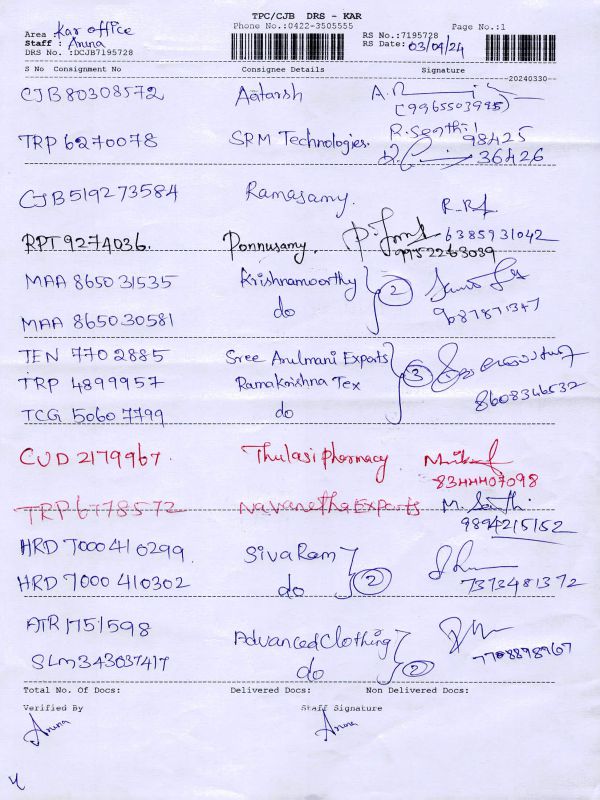 TPC/CJB DRS - KAR
Phone No.:0422-3505555 Page No.:1
Area : Kar office
Staff : Aruna
DRS No. :DCJB7195728
RS No.:7195728
RS Date: 03/04/24
S No Consignment No Consignee Details Signature
20240330
CJB 80308572 Aatarsh
(9965503995)
TRP 6270078 SRM Technologies. R. Senthil 98425
36426
CJB 519273584 Ramasamy.
6385931042
RPT 9274036. Ponnusamy.
9952263039
MAA 865031535 Krishnamoorthy 2
MAA 865030581 do
9687871347
TEN 7702885 Sree Arulmani Exports
TRP 4899957 Ramakrishna Tex 3
TCG 50607799 do 8608346532
CUD 2179967. Thulasi pharmacy
8344407098
TRP 6778572 Navanetha Exports M. Santhi
9894215152
HRD 7000410299 SivaRam
HRD 7000 410302 do 2 7373481372
ATR 1751598 Advanced Clothing
SLM343037417 do 2
7708898967
Total No. Of Docs: Delivered Docs: Non Delivered Docs:
Verified By Staff Signature
Aruna Aruna